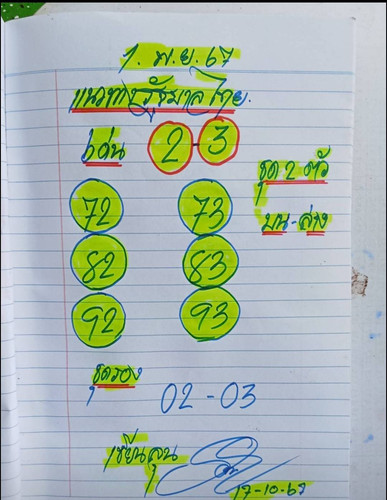 1. พ.ย. ๖๗
แนวทางรัฐบาลไทย.
เด่น 2-3
ชุด 2 ตัว
บน-ล่าง
72 73
82 83
92 93
ชุดรอง
02-03
เซียนลุน
17-10-67